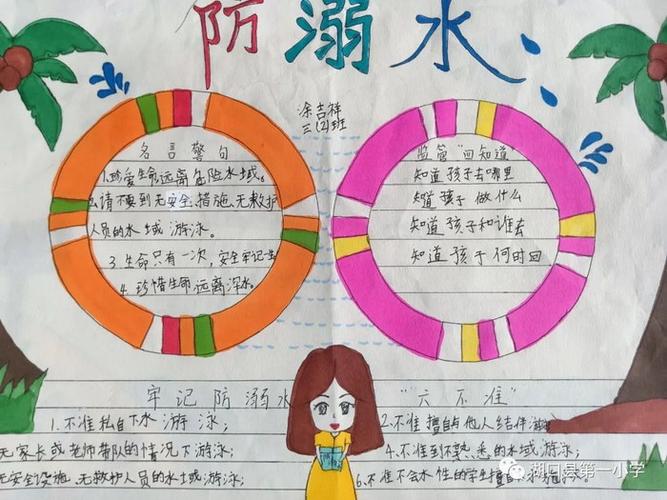 防溺水
涂吉祥
三(2)班
名言警句
1.珍爱生命远离危险水域。
2.请不要到无安全措施、无救护
人员的水域游泳。
3.生命只有一次,安全牢记一生
4.珍惜生命远离深水。
监管"四知道"
知道孩子去哪里
知道孩子做什么
知道孩子和谁去
知道孩子何时回
牢记防溺水"六不准"
1.不准私自下水游泳;
2.不准擅自与他人结伴游
无家长或老师带队的情况下游泳;
4.不准到不熟悉的水域游泳;
无安全设施、无救护人员的水域游泳;
6.不准不会水性的学生擅自下水
湖口县第一小学